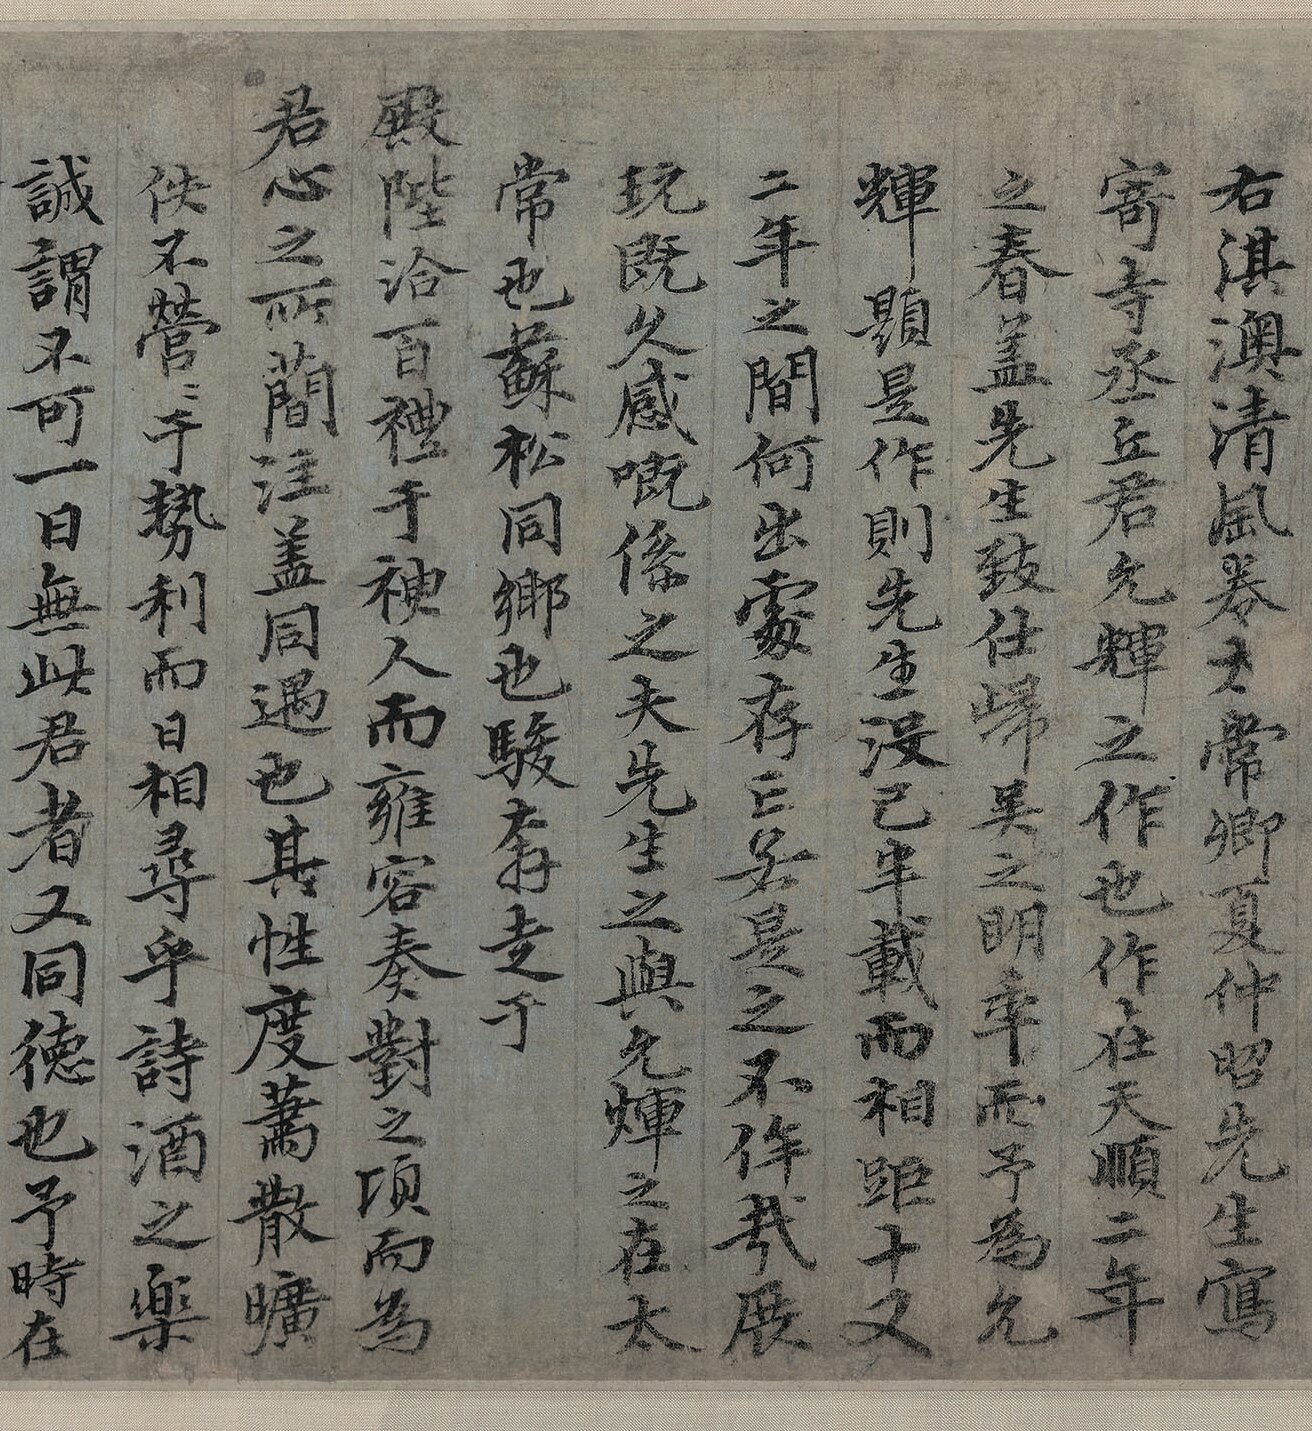 右淇澳清風卷太常卿夏仲昭先生寫
寄寺丞丘君允輝之作也作在天順二年
之春盖先生致仕歸吴之明年而予為允
輝題是作則先生没已半載而相距十又
二年之間何出處存亡若是之不侔哉展
玩既久感嘅係之夫先生之與允輝之在太
常也蘇松同鄉也駿奔走于
殿陛洽百禮于神人而雍容奏對之頃而為
君心之所簡注盖同遇也其性度蕭散曠
佚不營〻于勢利而日相尋乎詩酒之樂
誠謂不可一日無此君者又同德也予時在